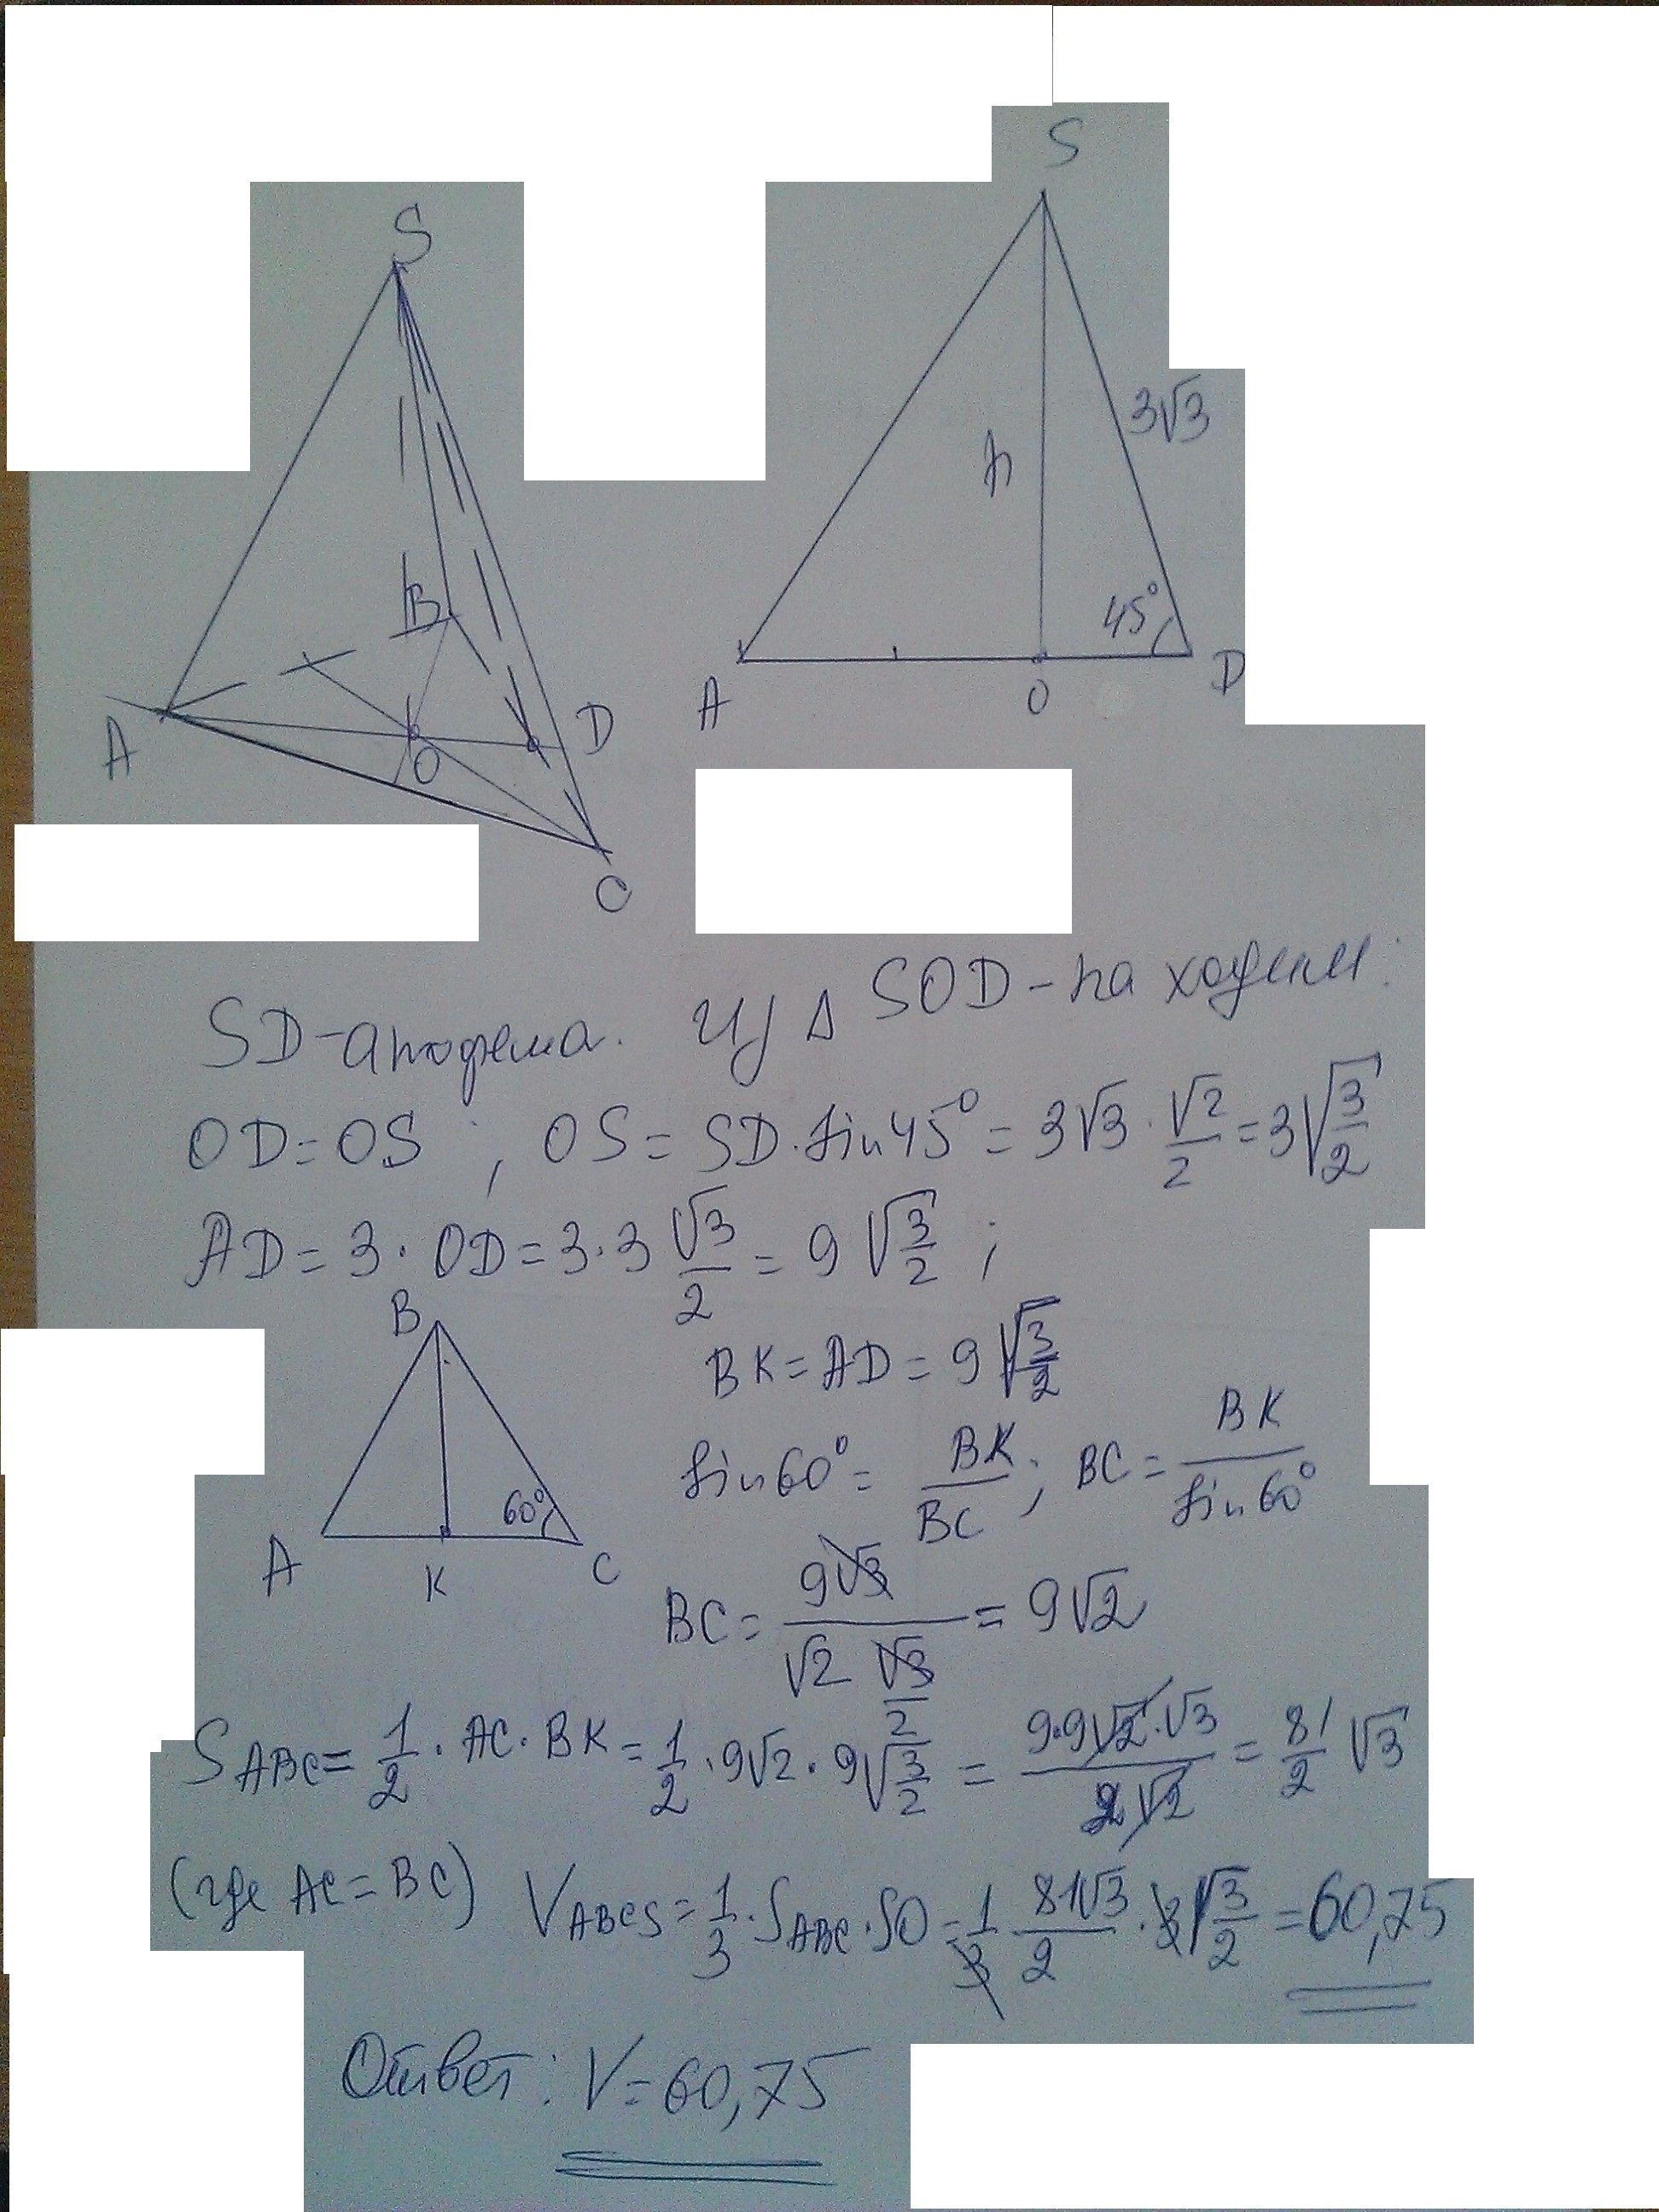 S
S
3√3
h
B
45°
A
O
D
A
O
D
C
SD-апофема. Из Δ SOD-находим:
OD=OS ; OS = SD·sin45° = 3√3 · √2/2 = 3√(3/2)
AD = 3 · OD = 3·3 √3/2 = 9 √(3/2) ;
B
BK = AD = 9 √(3/2)
sin60° = BK/BC ; BC = BK/sin60°
60°
A
K
C
BC = 9√3/(√2 √3/2) = 9√2
S ABC = 1/2 · AC · BK = 1/2 · 9√2 · 9√(3/2) = 9·9√2·√3/(2√2) = 81/2 √3
(где AC = BC) V ABCS = 1/3 · S ABC · SO = 1/3 81√3/2 · 3√(3/2) = 60,75
Ответ: V = 60,75